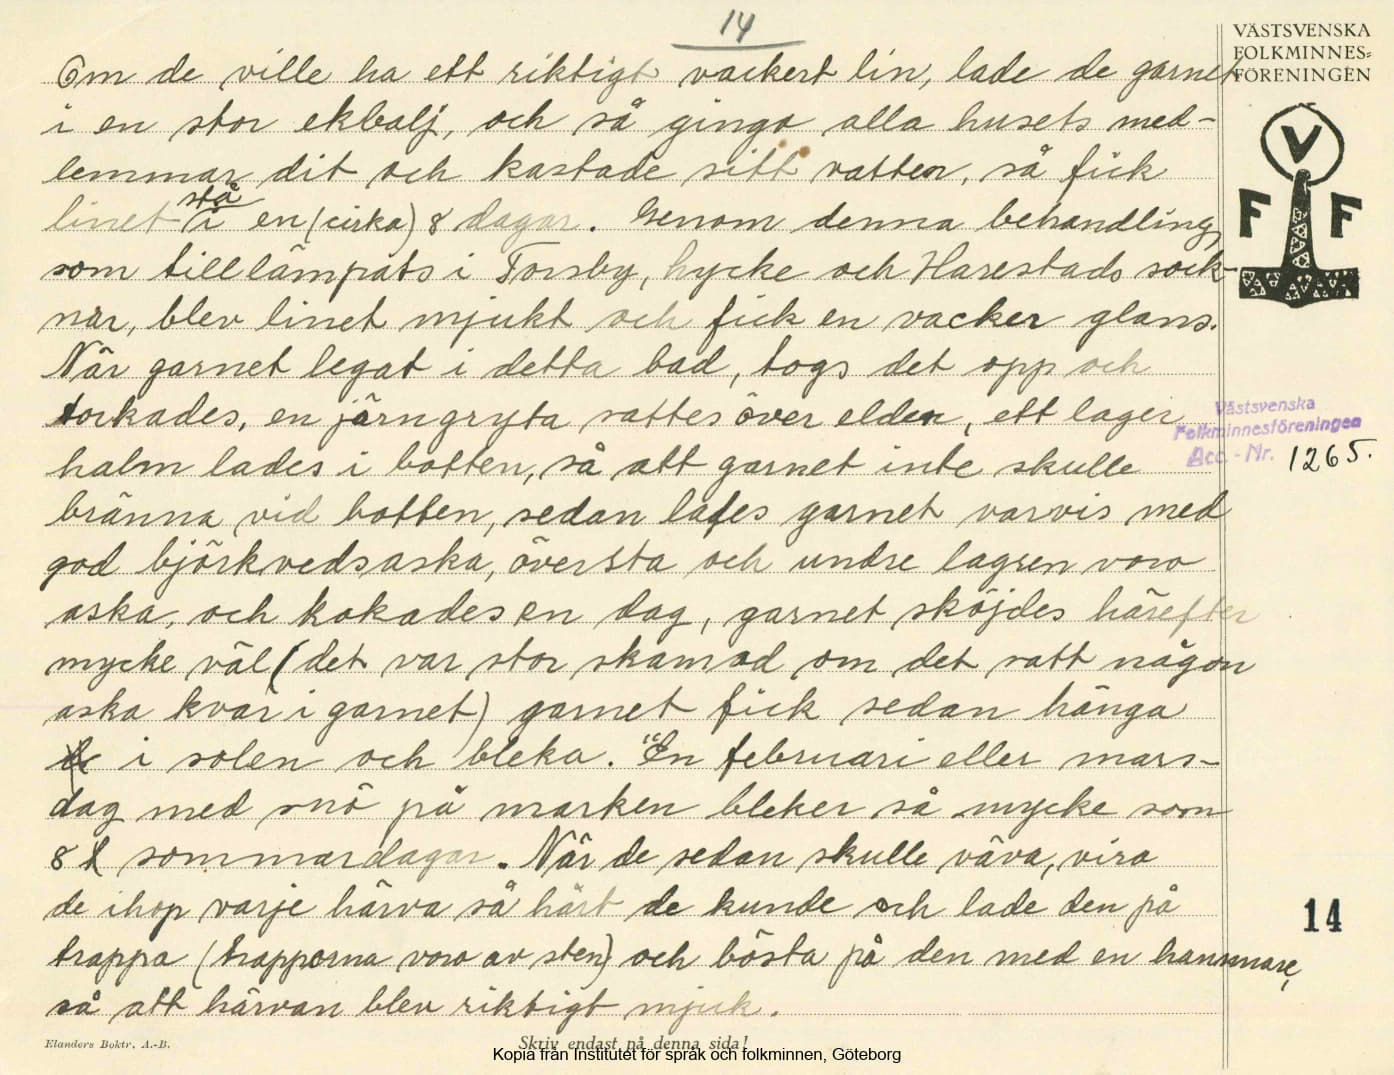 14
VÄSTSVENSKA
FOLKMINNES=
FÖRENINGEN
V
F F
Om de ville ha ett riktigt vackert lin, lade de garnet
i en stor ekbalj, och så gingo alla husets med-
lemmar dit och kastade sitt vatten, så fick
stå
linet i en (cirka) 8 dagar. Genom denna behandling,
som tilllämpats i Torsby, Lycke och Harestads sock-
nar, blev linet mjukt och fick en vacker glans.
När garnet legat i detta bad, togs det opp och
torkades, en järngryta sattes över elden, ett lager
halm lades i botten, så att garnet inte skulle
bränna vid botten, sedan lades garnet varvis med
god björkvedsaska, översta och undre lagren voro
aska, och kokades en dag, garnet sköjdes härefter
mycke väl (det var stor skam ad om det satt någon
aska kvar i garnet) garnet fick sedan hänga
i solen och bleka. "En februari eller mars-
dag med snö på marken bleker så mycke som
8 sommardagar. När de sedan skulle väva, viro
de ihop varje härva så hårt de kunde och lade den på
trappa (trapporna voro av sten) och bösta på den med en hammare,
så att härvan blev riktigt mjuk.
Västsvenska
Folkminnesföreningen
Acc.-Nr. 1265.
14
Elanders Boktr. A.-B.
Skriv endast på denna sida!
Kopia från Institutet för språk och folkminnen, Göteborg